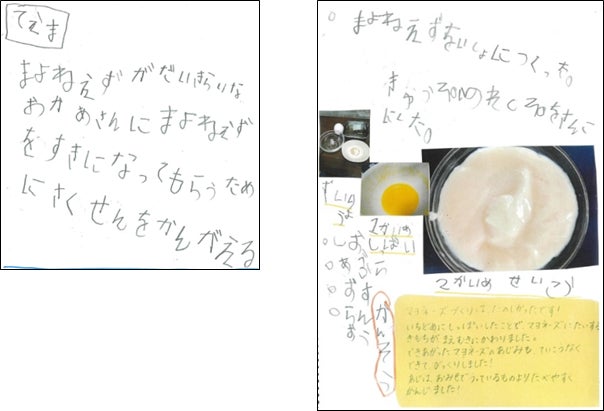 てえま
まよねえずがだいきらいな
おかあさんにまよねえず
をすきになってもらうため
にさくせんをかんがえる
まよねえずをいっしょにつくった。
にした。
しっぱい
○しお
○あぶら
2かいめ せいこう
かんそう
マヨネーズづくりは、たのしかったです!
いちどめにしっぱいしたことで、マヨネーズにたいする
きもちが、まえむきにかわりました。
できあがったマヨネーズのあじみも、ていこうなく
できて、びっくりしました!
あじは、おみせでうっているものよりたべやすく
かんじました!